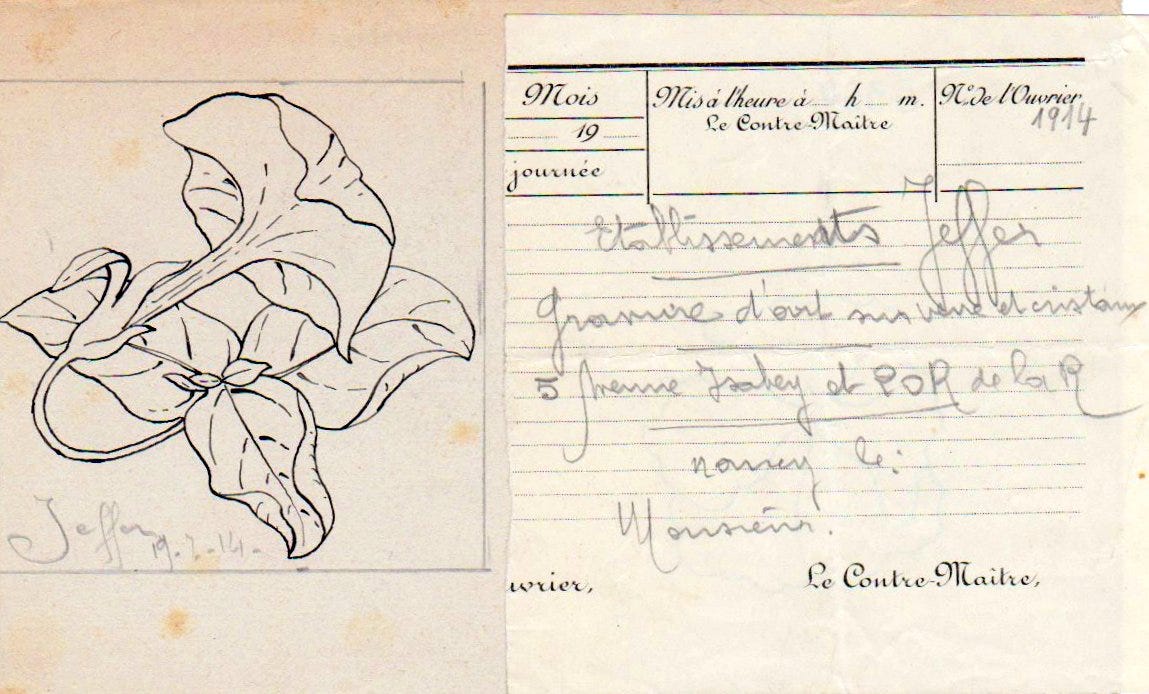 Mois
Mis à l'heure à h m.
N° de l'Ouvrier
19
Le Contre-Maître
1914
journée
Etablissements Jeffer
Gravure d'art sur verre et cristaux
5 Avenue Isabey et POR de la R
nancy le:
Monsieur.
Jeffer 19.7.14.
uvrier,
Le Contre-Maître,